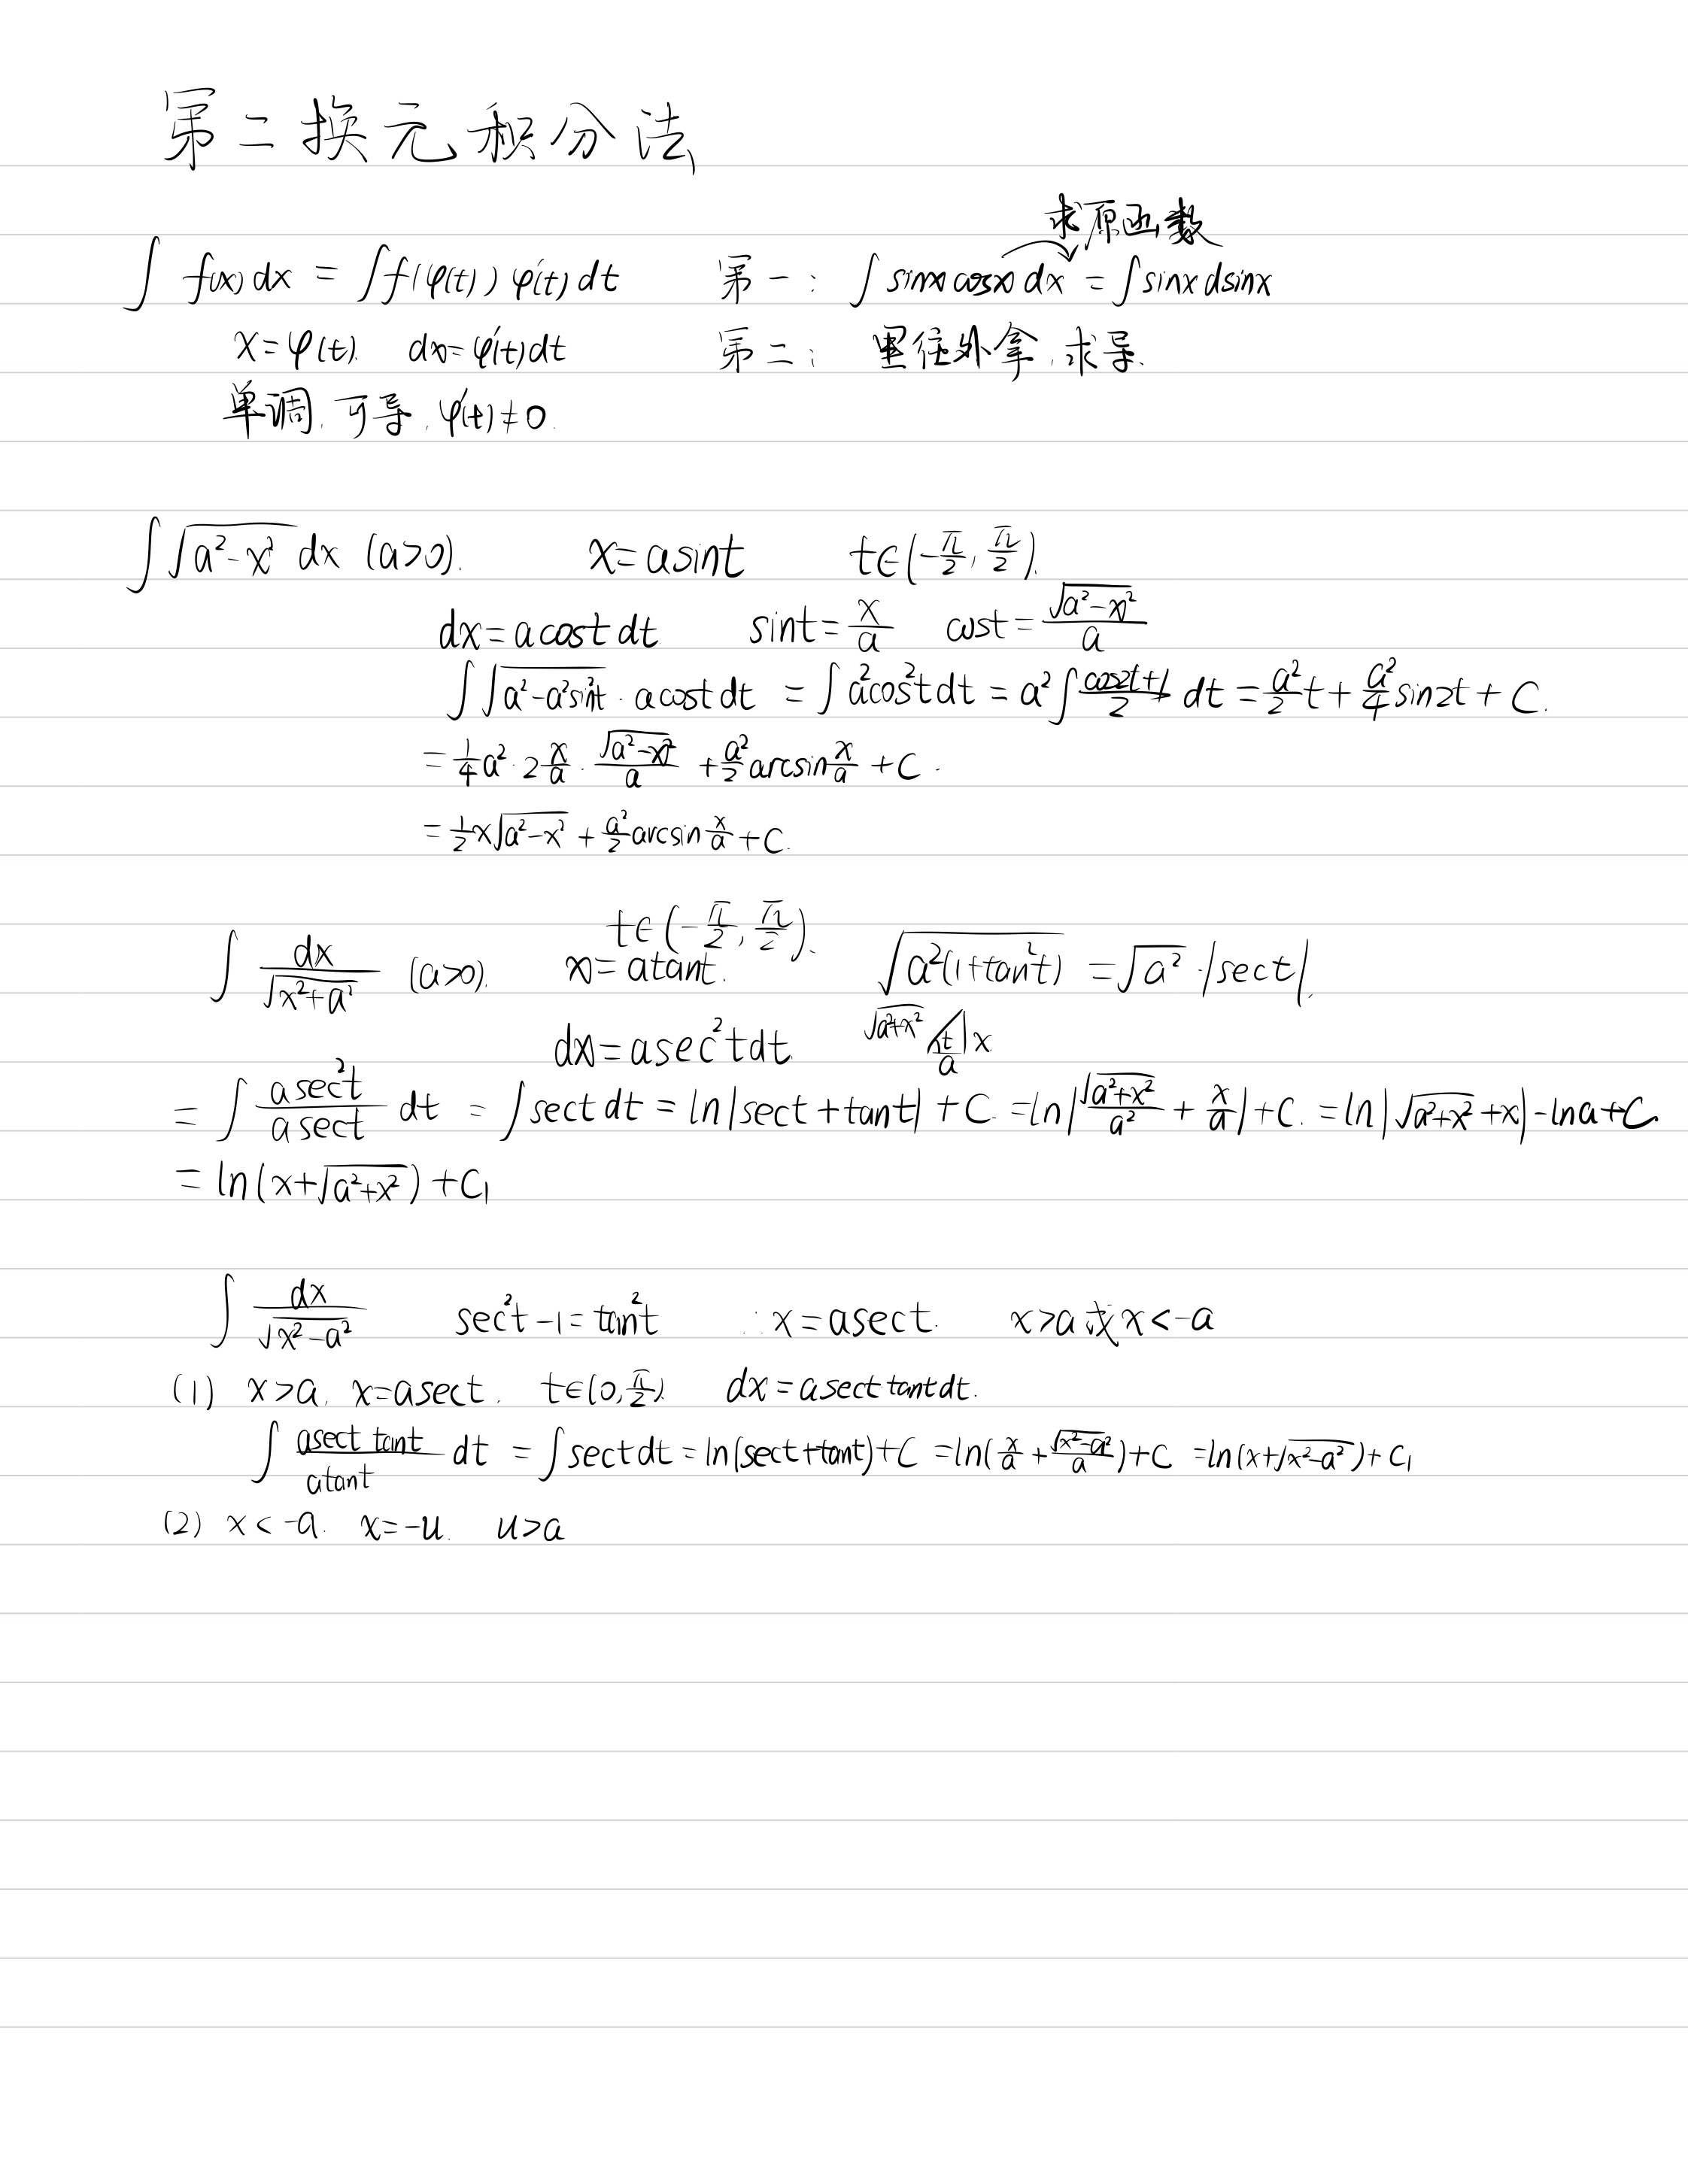 第二换元积分法
求原函数
∫ f(x) dx = ∫ f(φ(t)) φ'(t) dt 第一: ∫ sinx cosx dx = ∫ sinx dsinx
x = φ(t). dx = φ'(t) dt 第二: 里往外拿, 求导.
单调, 可导, φ'(t) ≠ 0.
∫ √(a²-x²) dx (a>0). x = a sint t∈(-π/2, π/2).
dx = a cost dt sint = x/a cost = √(a²-x²)/a
∫ √(a²-a²sin²t) · a cost dt = ∫ a²cos²t dt = a² ∫ (cos2t+1)/2 dt = a²/2 t + a²/4 sin2t + C.
= 1/4 a² · 2 x/a · √(a²-x²)/a + a²/2 arcsin x/a + C.
= 1/2 x√(a²-x²) + a²/2 arcsin x/a + C.
t∈(-π/2, π/2).
∫ dx/√(x²+a²) (a>0). x = a tant. √(a²(1+tan²t)) = √a² · |sect|.
dx = a sec²t dt. √(a²+x²) t x a
= ∫ a sec²t / a sect dt = ∫ sect dt = ln|sect + tant| + C. = ln|√(a²+x²)/a² + x/a| + C. = ln|√(a²+x²) + x| - lna + C.
= ln(x+√(a²+x²)) + C₁
∫ dx/√(x²-a²) sec²t - 1 = tan²t ∴ x = a sect. x>a 或 x<-a
(1) x>a, x = a sect, t∈(0, π/2). dx = a sect tant dt.
∫ a sect tant / a tant dt = ∫ sect dt = ln(sect+tant) + C = ln(x/a + √(x²-a²)/a) + C = ln(x+√(x²-a²)) + C₁
(2) x < -a. x = -u. u>a